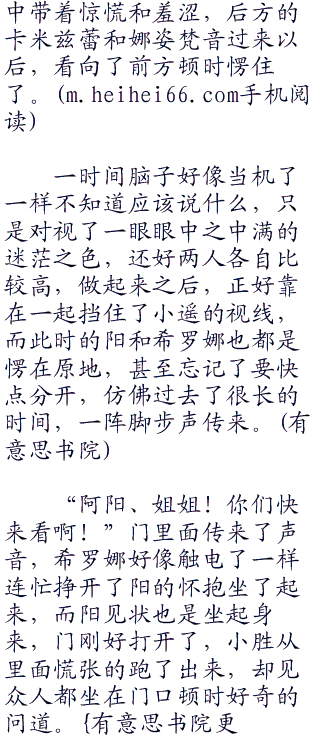 中带着惊慌和羞涩，后方的
卡米兹蕾和娜姿梵音过来以
后，看向了前方顿时愣住
了。(m.heihei66.com手机阅
读)
一时间脑子好像当机了
一样不知道应该说什么，只
是对视了一眼眼中之中满的
迷茫之色，还好两人各自比
较高，做起来之后，正好靠
在一起挡住了小遥的视线，
而此时的阳和希罗娜也都是
愣在原地，甚至忘记了要快
点分开，仿佛过去了很长的
时间，一阵脚步声传来。(有
意思书院)
“阿阳、姐姐！你们快
来看啊！”门里面传来了声
音，希罗娜好像触电了一样
连忙挣开了阳的怀抱坐了起
来，而阳见状也是坐起身
来，门刚好打开了，小胜从
里面慌张的跑了出来，却见
众人都坐在门口顿时好奇的
问道。{有意思书院更